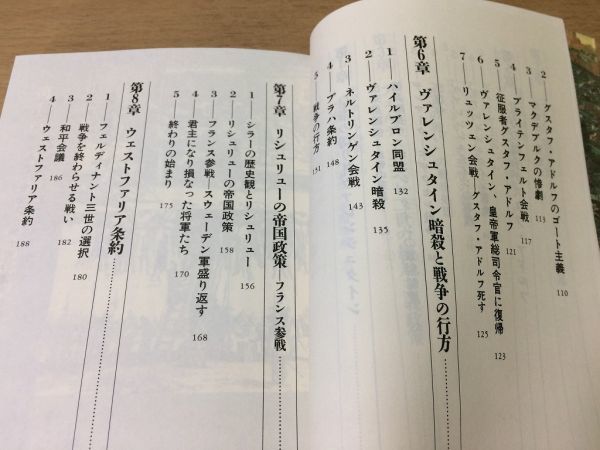 2 グスタフ・アドルフのゴート主義 110
3 マクデブルクの惨劇 113
4 ブライテンフェルト会戦 117
5 征服者グスタフ・アドルフ 121
6 ヴァレンシュタイン、皇帝軍総司令官に復帰 123
7 リュッツェン会戦―グスタフ・アドルフ死す 125
第6章 ヴァレンシュタイン暗殺と戦争の行方
1 ハイルブロン同盟 132
2 ヴァレンシュタイン暗殺 135
3 ネルトリンゲン会戦 143
4 プラハ条約 148
5 戦争の行方 151
第7章 リシュリューの帝国政策―フランス参戦
1 シラーの歴史観とリシュリュー 156
2 リシュリューの帝国政策 158
3 フランス参戦―スウェーデン軍盛り返す 168
4 君主になり損なった将軍たち 170
5 終わりの始まり 175
第8章 ウェストファリア条約
1 フェルディナント三世の選択 180
2 戦争を終わらせる戦い 182
3 和平会議 186
4 ウェストファリア条約 188